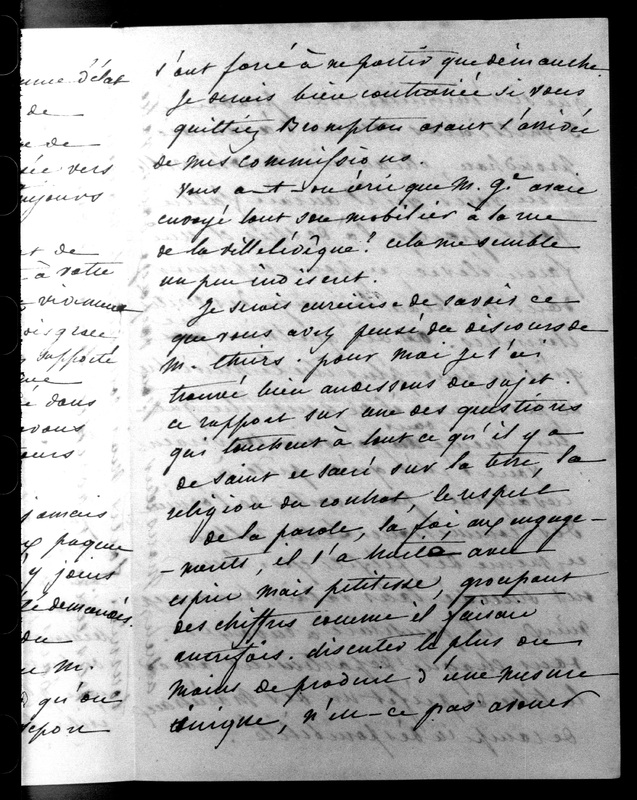 sune d'état
de
de
sée vers
toujours
de
à votre
vicomme
grace
supporte
dans
avons
jours
jamais
paquu
y joins
été demandés.
du
M.
qu'on
s'ont forcé à ne partir que dimanche.
Je serais bien contrariée si vous
quittiez Brompton avant l'arrivée
de mes commissions
Vous a-t-on écrit que M. Gr avait
envoyé tout son mobilier à la rue
de la ville l'évêque? cela me semble
un peu indiscret.
Je serais curieuse de savoir ce
que vous avez pensé du discours de
M. Thiers. pour moi je l'ai
trouvé bien audessous du sujet.
ce rapport sur une des questions
qui touchent à tout ce qu'il y a
de saint et sacré sur la terre, la
religion du contrat, le respect
de la parole, la foi aux engage-
-ments, il l'a traité avec
esprit mais petitesse, groupant
des chiffres comme il faisait
autrefois. discuter le plus ou
moins de produit d'une mesure
inique, n'est-ce pas avouer